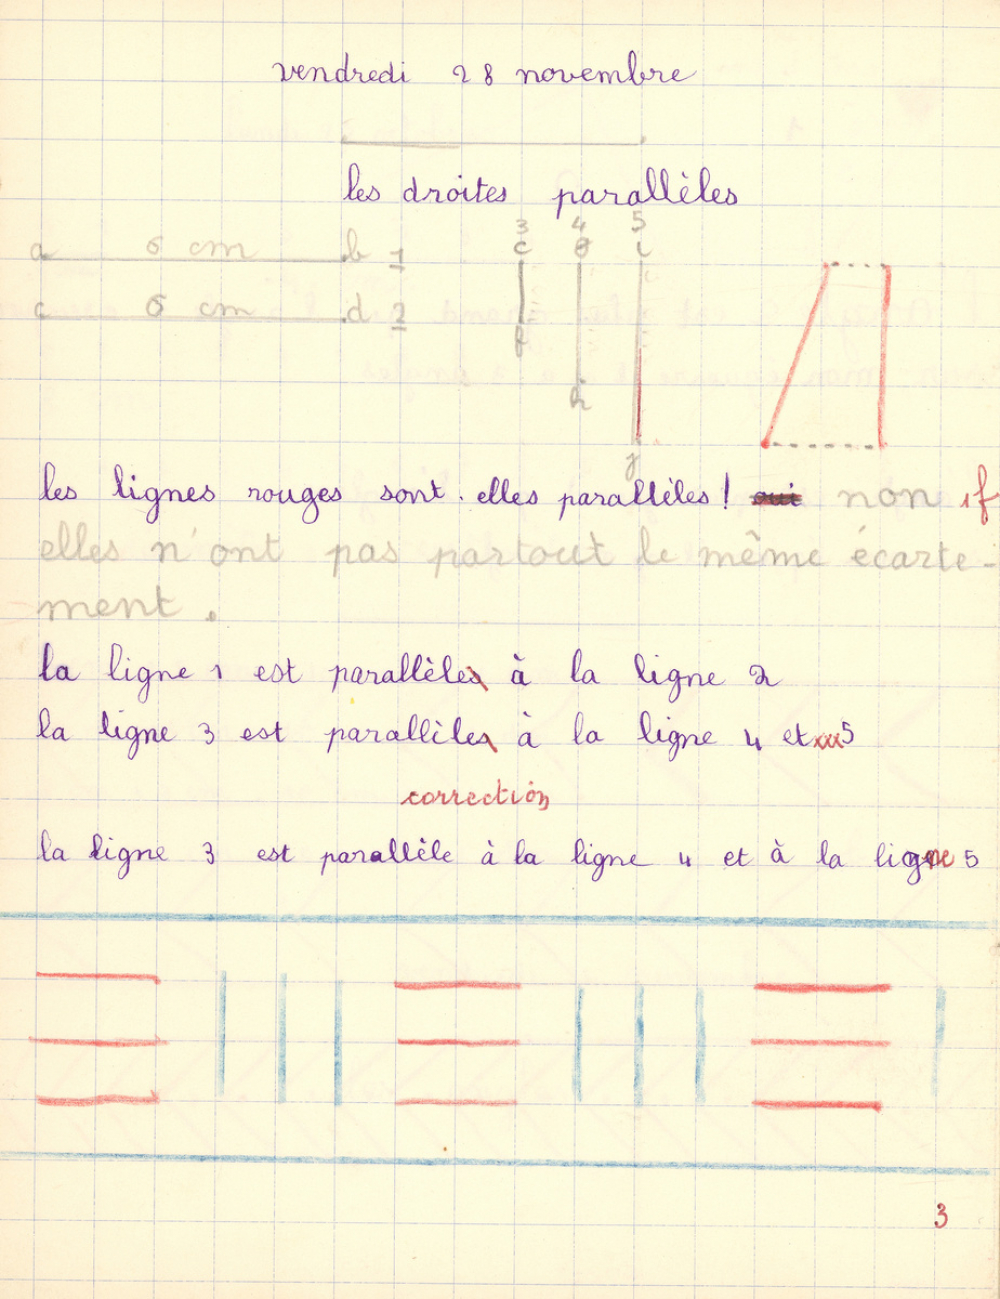 vendredi 28 novembre
les droites parallèles
3 4 5
a 6 cm b 1 c g i
c 6 cm d 2
f
h
j
les lignes rouges sont. elles parallèles ! oui non
elles n'ont pas partout le même écarte-
ment.
la ligne 1 est parallèles à la ligne 2
la ligne 3 est parallèles à la ligne 4 et 5
correction
la ligne 3 est parallèle à la ligne 4 et à la ligne 5
3